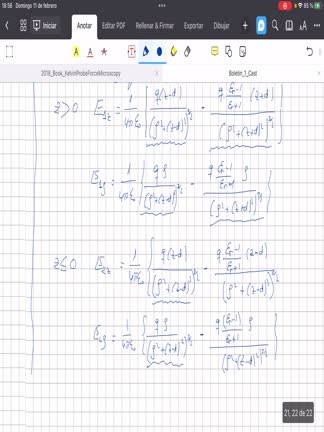 18:56 Domingo 11 de febrero
85 %
Iniciar Anotar Editar PDF Rellenar & Firmar Exportar Dibujar
2018_Book_KelvinProbeForceMicroscopy Boletin_1_Cast
z>0 E_{1z} = \frac{1}{4πε_0} { \frac{q(z-d)}{(ρ²+(z-d)²)^{3/2}} - \frac{q \frac{ε_r-1}{ε_r+1} (z+d)}{(ρ²+(z+d)²)^{3/2}} }
E_{1ρ} = \frac{1}{4πε_0} { \frac{q ρ}{(ρ²+(z-d)²)^{3/2}} - \frac{q \frac{ε_r-1}{ε_r+1} ρ}{(ρ²+(z+d)²)^{3/2}} }
z≤0 E_{2z} = \frac{1}{4πε_0} { \frac{q(z-d)}{(ρ²+(z-d)²)^{3/2}} - \frac{q \frac{ε_r-1}{ε_r+1} (z-d)}{(ρ²+(z-d)²)^{3/2}} }
E_{2ρ} = \frac{1}{4πε_0} { \frac{q ρ}{(ρ²+(z-d)²)^{3/2}} - \frac{q \frac{(ε_r-1)}{ε_r+1} ρ}{(ρ²+(z-d)²)^{3/2}} }
21, 22 de 22